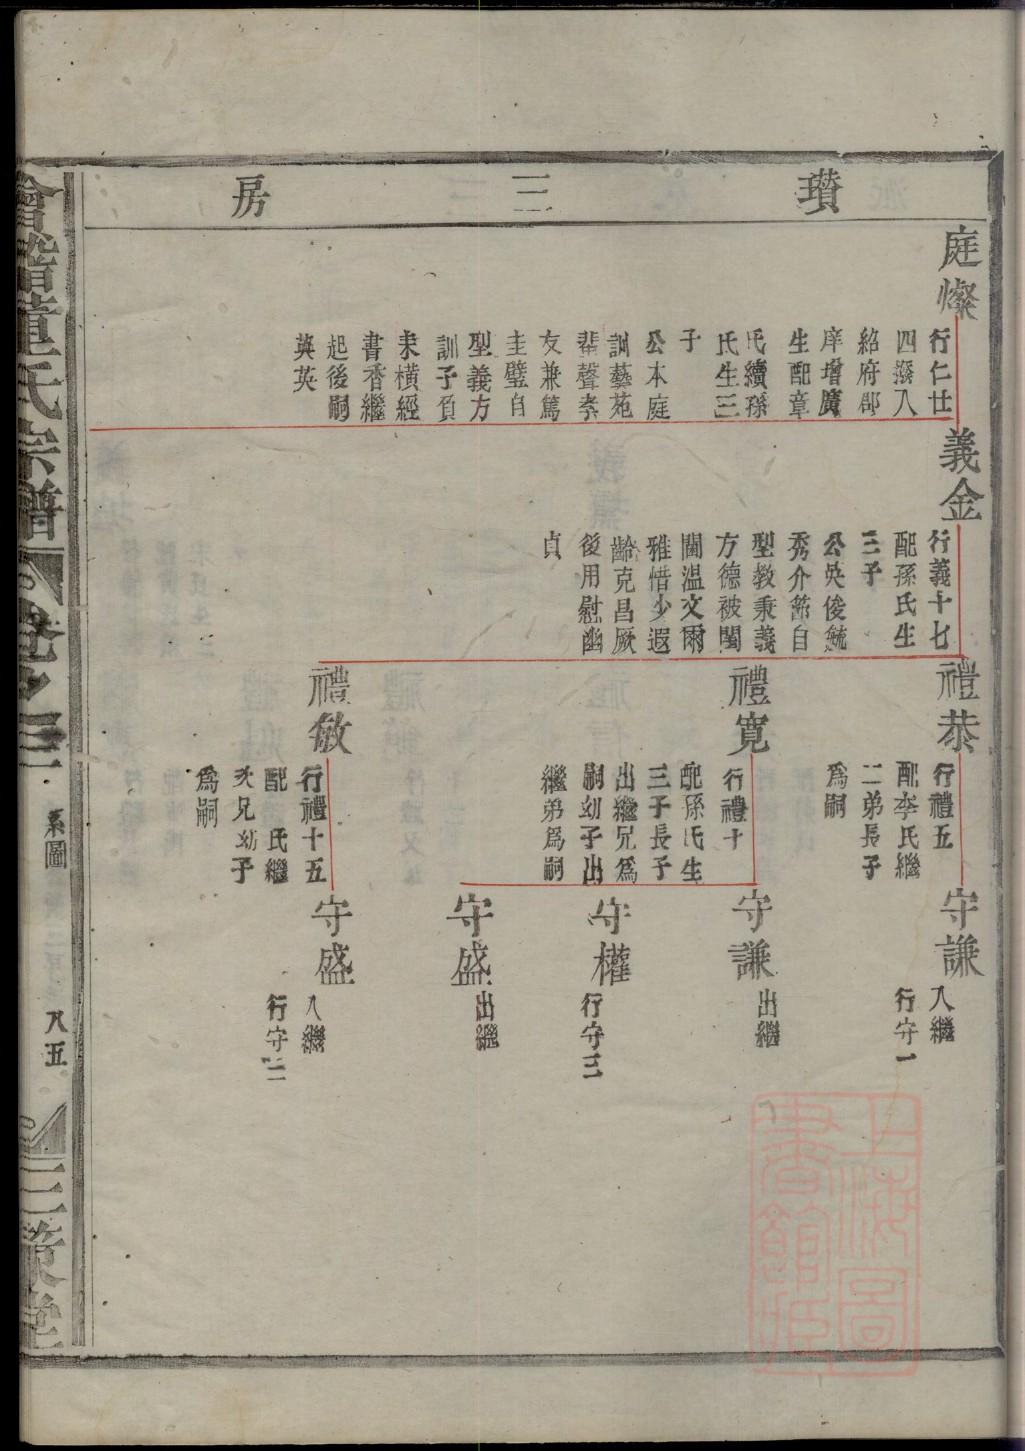 瓚三房
庭燦
行仁廿
四撥入
紹府郡
庠增廣
生配章
氏續孫
氏生三
子
公本庭
訓藝苑
蜚聲孝
友兼篤
圭璧自
型義方
訓子負
耒橫經
書香繼
起後嗣
英英
義金
行義十七
配孫氏生
三子
公英俊毓
秀介節自
型教秉義
方德被閨
閫溫文爾
雅惜少遐
齡克昌厥
後用慰幽
貞
禮恭
行禮五
配李氏繼
二弟長子
爲嗣
禮寬
行禮十
配孫氏生
三子長子
出繼兄爲
嗣幼子出
繼弟爲嗣
禮敏
行禮十五
配　氏繼
次兄幼子
爲嗣
守謙
入繼
行守一
守謙
出繼
守權
行守三
守盛
出繼
守盛
入繼
行守二
會稽章氏宗譜
卷之三
系圖
八五
三策堂
上海圖書館藏